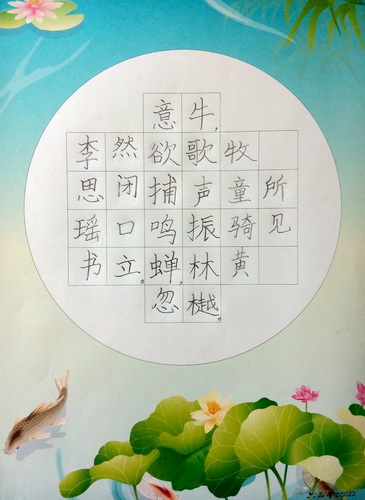 所见
牧童骑黄
牛,歌声振林樾。
意欲捕鸣蝉,忽
然闭口立。
李思瑶书